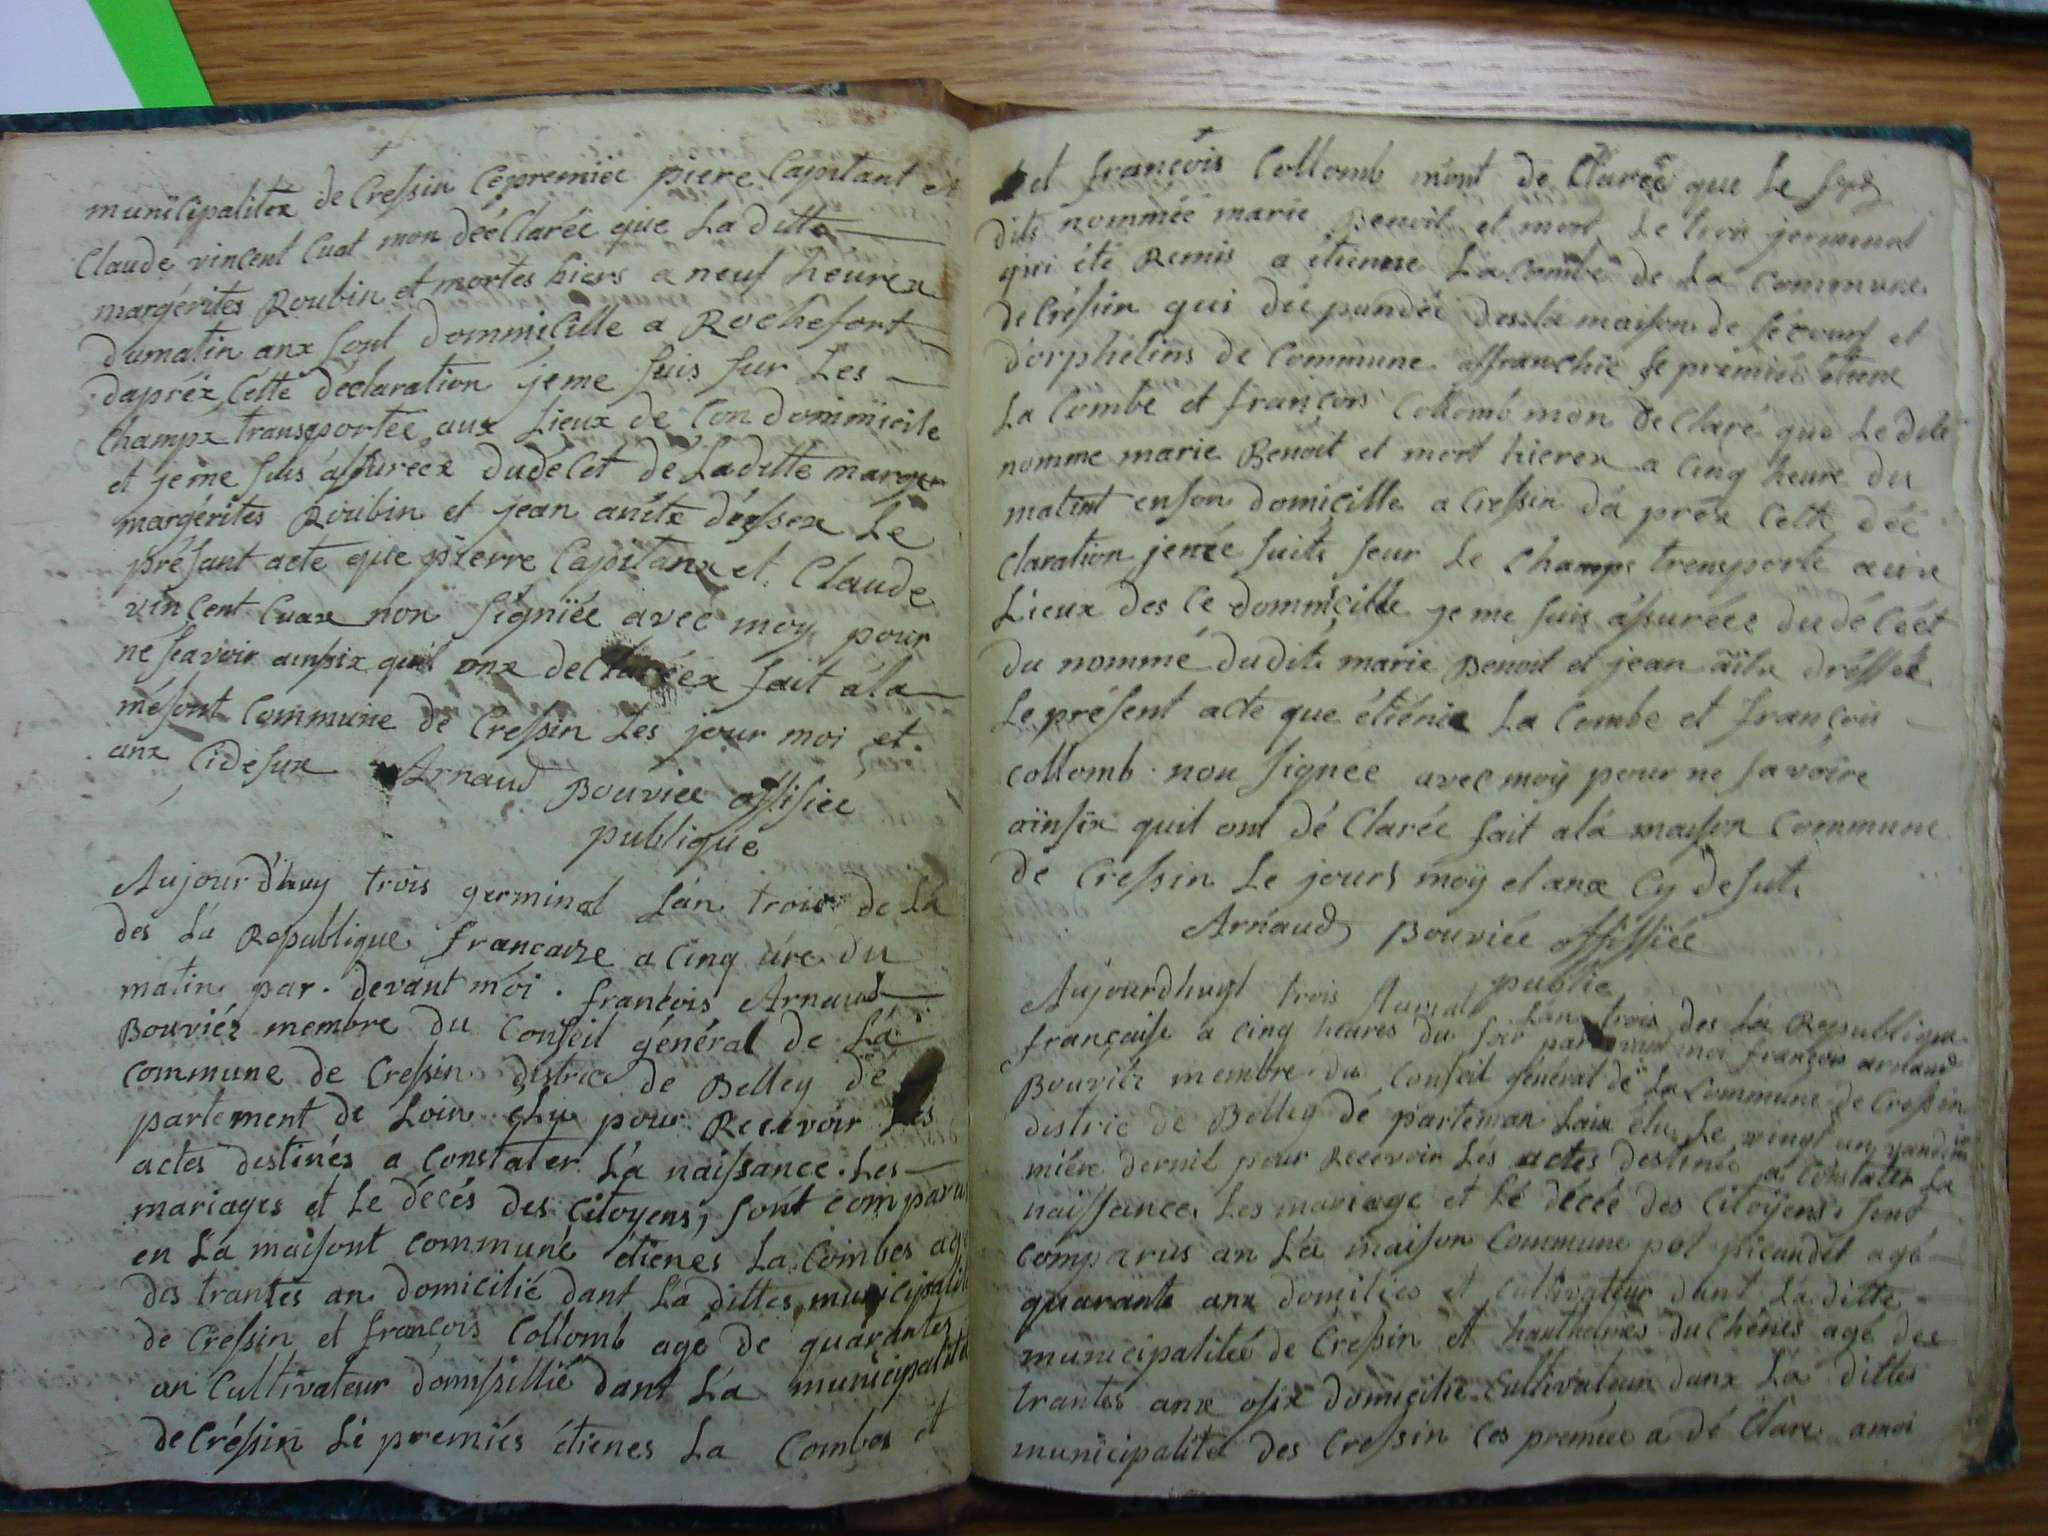 municipalitex de Cressin Cepremiée piere Capitant et
Claude vincent Cuat mon déclarée que La ditte
margérites Roubin et mortes hiers a neuf heurex
dumatin anx sont dommicille a Rochefort
dapréz Cette déclaration jeme suis sur Les
champx transportée aux Lieux de Con dommicile
et jeme suis assureex dudécet de Laditte marger
margérites Roubin et jean anéte désser Le
présant acte que pierre Capitanx et Claude
vincent Cuax non signiée avec moy pour
ne scavoir ainsix quil onx declaréex fait a la
mésont Commune de Cressin Les jour moi et
anx Cidesux Arnaud Bouviee offisiee
publique
Aujourd'huy trois germinal L'an trois de La
des La Republique francaize a Cinq ure du
matin par devant moi françois Arnaud
Bouviéz membre du Conseil général de La
commune de Cressin distric de Belley dé
partement de Loin élu pour Recevoir Les
actes destinés a Constater La naissance Les
mariages et Le décés des Citoyens, sont comparus
en La maisont communé étienes La Combes age
des trantes an domicilié dant La dittes municipalité
de Cressin et françois Collomb agé de quarantes
an Cultivateur domisillié dant La municipalité
de Créssin Lé premiés étienes La Combes et
et françois Collomb mont de Clarée que Le
dits nommée marie Benoit et mort Le trois jerminal
qui été Remis a étienne La Combe de La Commune
de Créssin qui dépandée des La maison de sécours et
d'orphélins de Commune affranchie Le prémiée étiene
La Combe et françois Collomb mon de Claré que Le dite
nomme marie Benoit et mort hierex a Cinq heure du
matint enson domicille a Cressin da préx Cette déc
claration jemée suits seur Le Champs transporte aux
Lieux des Ce dommicille je me suis assuréee du décéét
du nommé dudits marie Benoit et jean aite dressée
Le présent acte que étiénie La Combe et françois
collomb non signee avec moy pour ne savoire
ainsix quil ont dé Clarée fait a la maison Commune
de Cressin Le jours moy et anx Cy desut
Arnaud Bouviée offissiée
public
Aujourdhuyt trois L'an trois des La Republique
française a cinq heures du soir par devant moi françois arnaud
Bouviéz membre du Conseil général de La Commune de Cressin
distric de Belley départeman Lain élu Le vingt un vandé
miére dernit pour Recevoir Lés actes destinée a Constater La
naissance Les mariage et Lé décée des Citoyens sont
comparus an La maison Commune agé
quarante anx domiliée et Cultivateur dant La ditte
municipalitée de Cressin et hanthelmes du Chênes agé des
trantes anx osix domicilié Cultivateur danx La dittes
municipalité des Cressin Ces premiée a dé Clare amoi